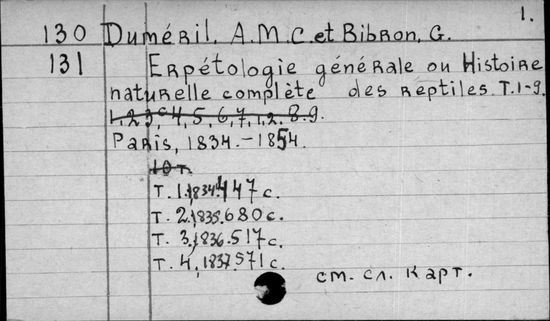 1.
130 Duméril, A.M.C. et Bibron, G.
131 Erpétologie générale ou Histoire
naturelle complète des reptiles. T. 1-9.
1, 2, 3, 4, 5 6, 7, 1, 2. 8. 9.
Paris, 1834.-1854.
10 т.
T. 1. 1834. 447 c.
T. 2. 1835. 680 c.
T. 3, 1836. 517 c.
T. 4, 1837. 571 c.
см. сл. карт.